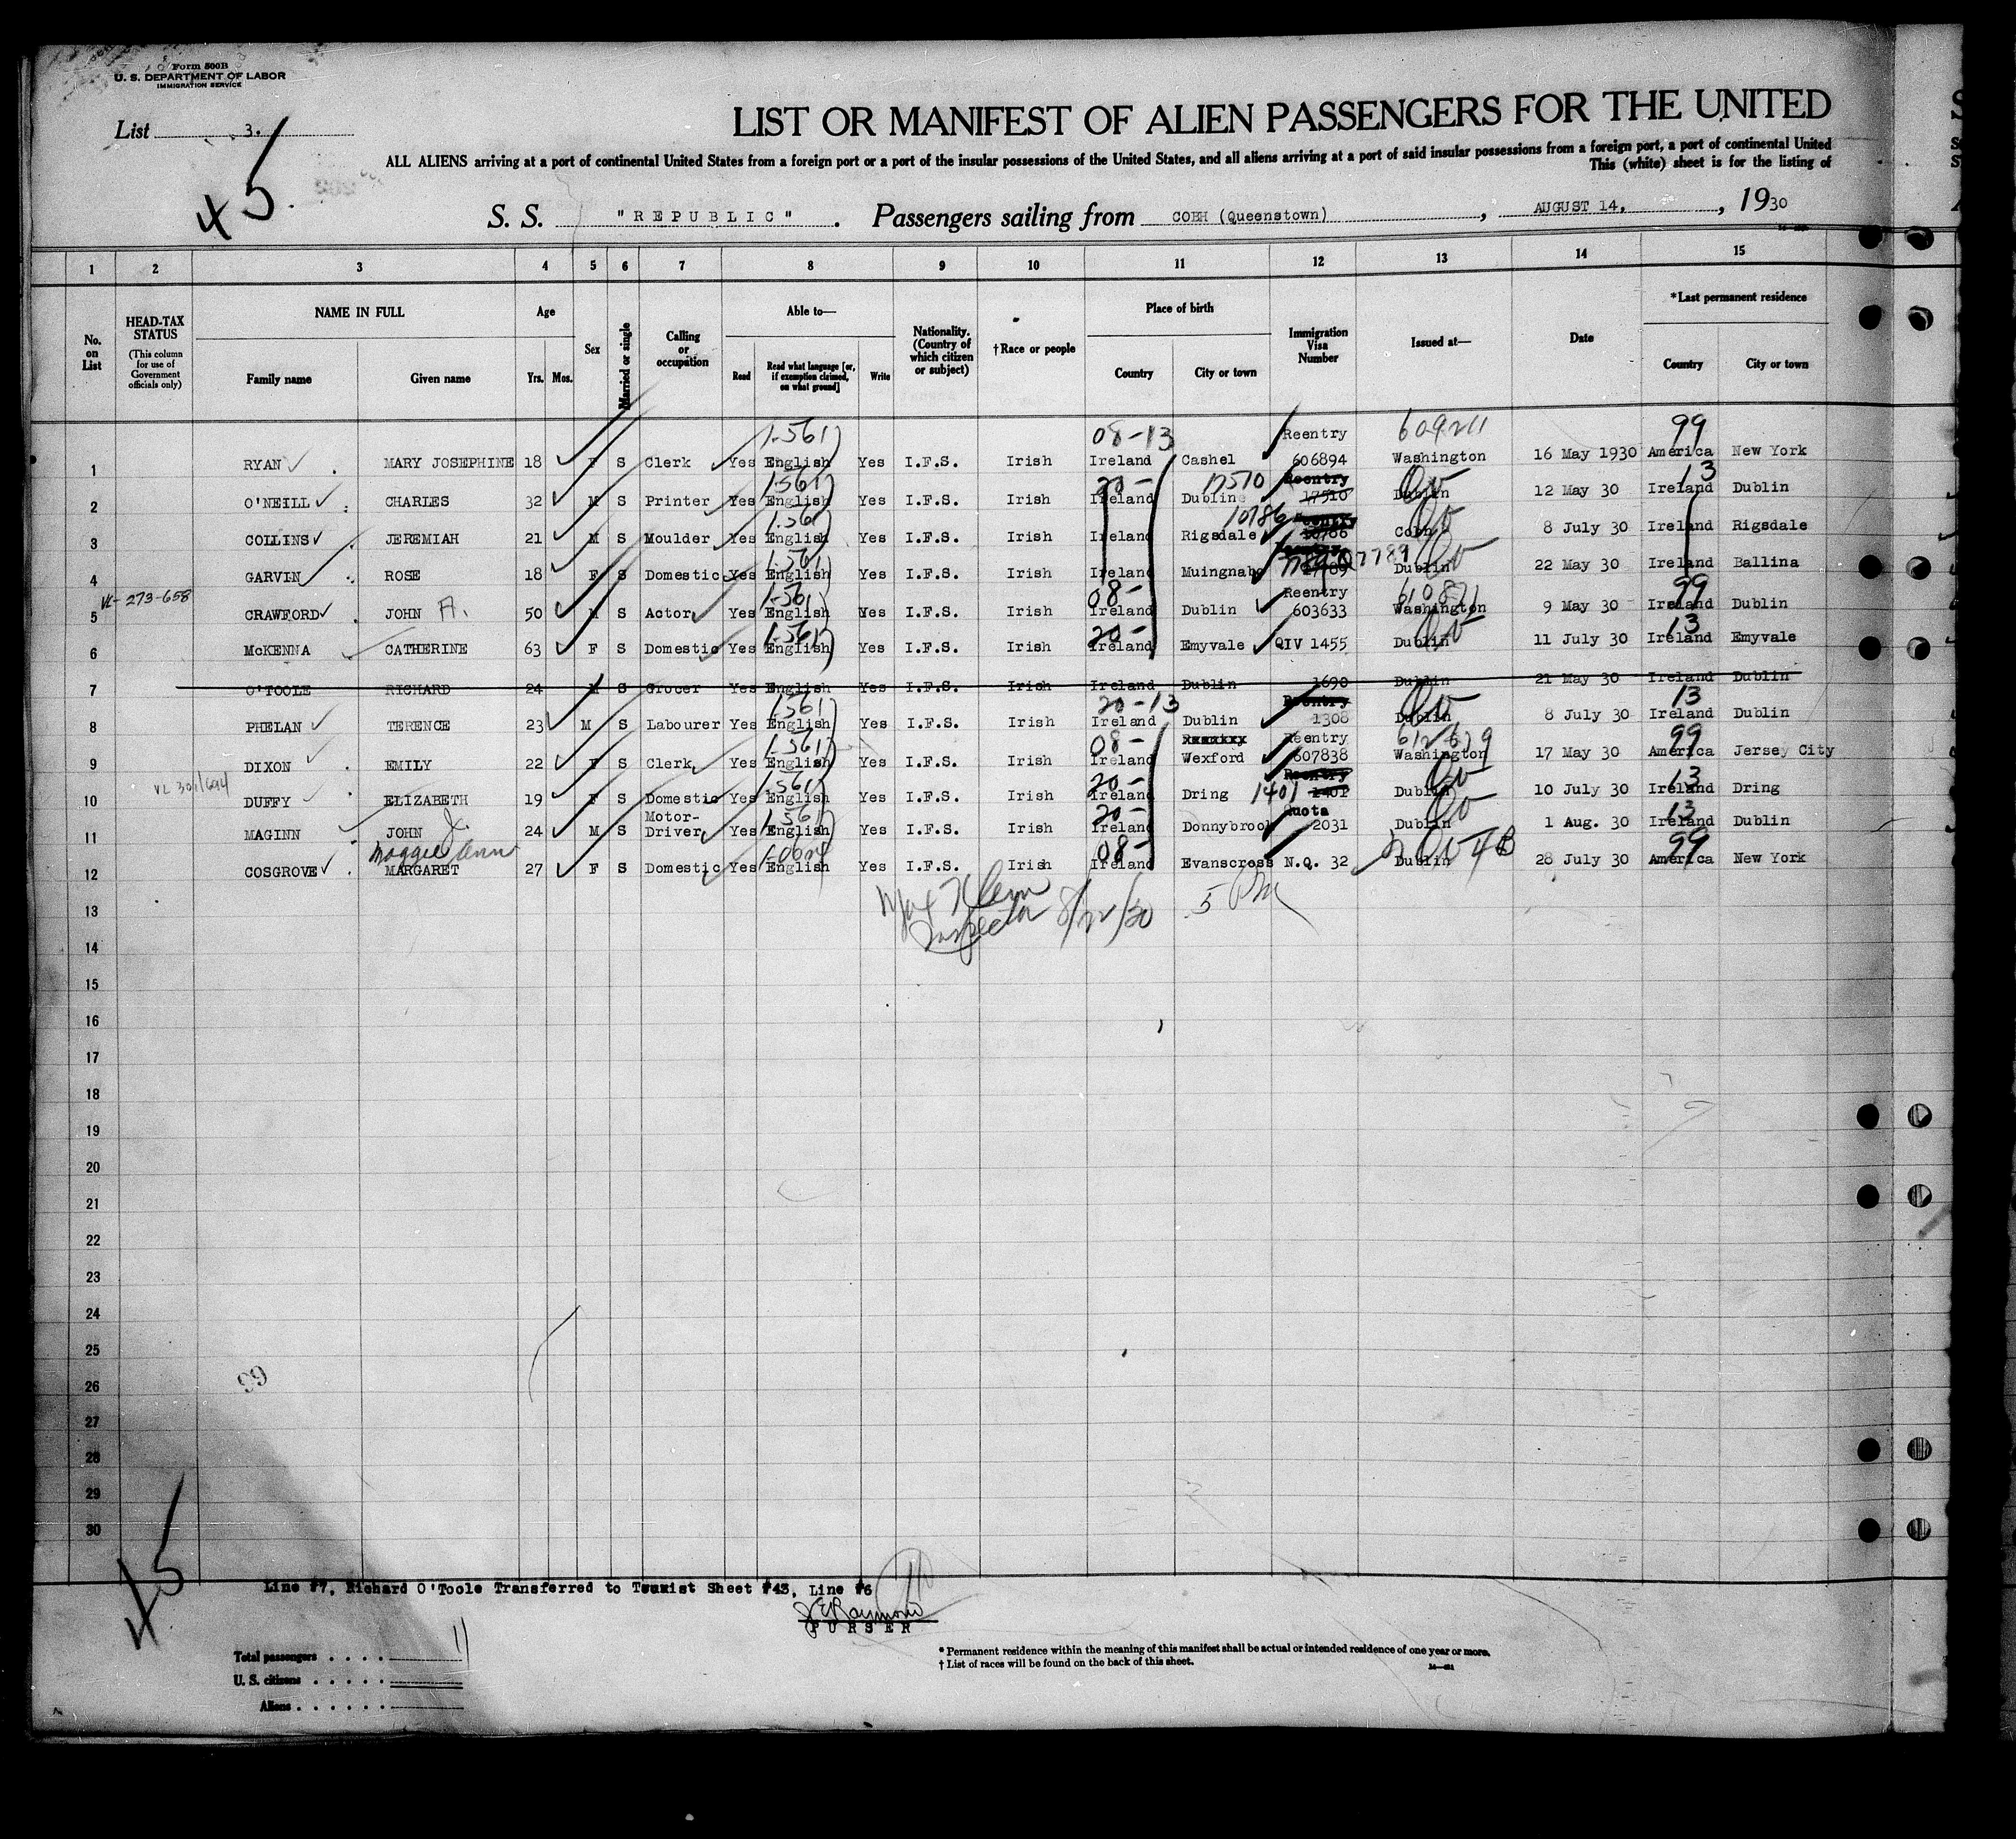 Form 500B
U. S. DEPARTMENT OF LABOR
IMMIGRATION SERVICE
List 3.
45
LIST OR MANIFEST OF ALIEN PASSENGERS FOR THE UNITED
ALL ALIENS arriving at a port of continental United States from a foreign port or a port of the insular possessions of the United States, and all aliens arriving at a port of said insular possessions from a foreign port, a port of continental United
This (white) sheet is for the listing of
S. S. "REPUBLIC". Passengers sailing from COBH (Queenstown), AUGUST 14, 1930
1 2 3 4 5 6 7 8 9 10 11 12 13 14 15
No. on List
HEAD-TAX STATUS
(This column for use of Government officials only)
NAME IN FULL
Family name Given name
Age
Yrs. Mos.
Sex
Married or single
Calling or occupation
Able to—
Read Read what language [or, if exemption claimed, on what ground] Write
Nationality. (Country of which citizen or subject)
†Race or people
Place of birth
Country City or town
Immigration Visa Number
Issued at—
Date
*Last permanent residence
Country City or town
1-561 08-13 Reentry 609211 99
1 RYAN MARY JOSEPHINE 18 F S Clerk Yes English Yes I.F.S. Irish Ireland Cashel 606894 Washington 16 May 1930 America New York
1-561 20- 17510 Reentry 13
2 O'NEILL CHARLES 32 M S Printer Yes English Yes I.F.S. Irish Ireland Dublin 17510 Dublin 12 May 30 Ireland Dublin
1-561 10786
3 COLLINS JEREMIAH 21 M S Moulder Yes English Yes I.F.S. Irish Ireland Rigsdale 10786 Cobh 8 July 30 Ireland Rigsdale
1-561
4 GARVIN ROSE 18 F S Domestic Yes English Yes I.F.S. Irish Ireland Muingnabo 17789 Dublin 22 May 30 Ireland Ballina
VL-273-658 1-561 08- Reentry 610871 99
5 CRAWFORD JOHN A. 50 M S Actor Yes English Yes I.F.S. Irish Ireland Dublin 603633 Washington 9 May 30 Ireland Dublin
1-561 20- 13
6 McKENNA CATHERINE 63 F S Domestic Yes English Yes I.F.S. Irish Ireland Emyvale QIV 1455 Dublin 11 July 30 Ireland Emyvale
7 O'TOOLE RICHARD 24 M S Grocer Yes English Yes I.F.S. Irish Ireland Dublin 1690 Dublin 21 May 30 Ireland Dublin
1-561 20-13 Reentry 13
8 PHELAN TERENCE 23 M S Labourer Yes English Yes I.F.S. Irish Ireland Dublin 1308 Dublin 8 July 30 Ireland Dublin
1-561 08- Reentry 612629 99
9 DIXON EMILY 22 F S Clerk Yes English Yes I.F.S. Irish Ireland Wexford 607838 Washington 17 May 30 America Jersey City
VL 301/694 1-561 20- Reentry 13
10 DUFFY ELIZABETH 19 F S Domestic Yes English Yes I.F.S. Irish Ireland Dring 1401 1401 Dublin 10 July 30 Ireland Dring
1-561 20- Quota 13
11 MAGINN JOHN J. 24 M S Motor-Driver Yes English Yes I.F.S. Irish Ireland Donnybrook 2031 Dublin 1 Aug. 30 Ireland Dublin
Maggie Ann 08- 99
12 COSGROVE MARGARET 27 F S Domestic Yes English Yes I.F.S. Irish Ireland Evanscross N.Q. 32 Dublin 28 July 30 America New York
Inspector 8/22/30 5 PM
13
14
15
16
17
18
19
20
21
22
23
24
25
26
27
28
29
30
99
45
Line #7, Richard O'Toole Transferred to Tourist Sheet #43, Line #6
J E Raymond
PURSER
Total passengers . . . . 11
U. S. citizens . . . . .
Aliens . . . . . .
* Permanent residence within the meaning of this manifest shall be actual or intended residence of one year or more.
† List of races will be found on the back of this sheet.